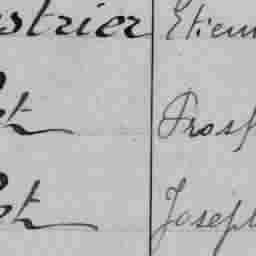 strier Etienn
t Prosp
ot Joseph